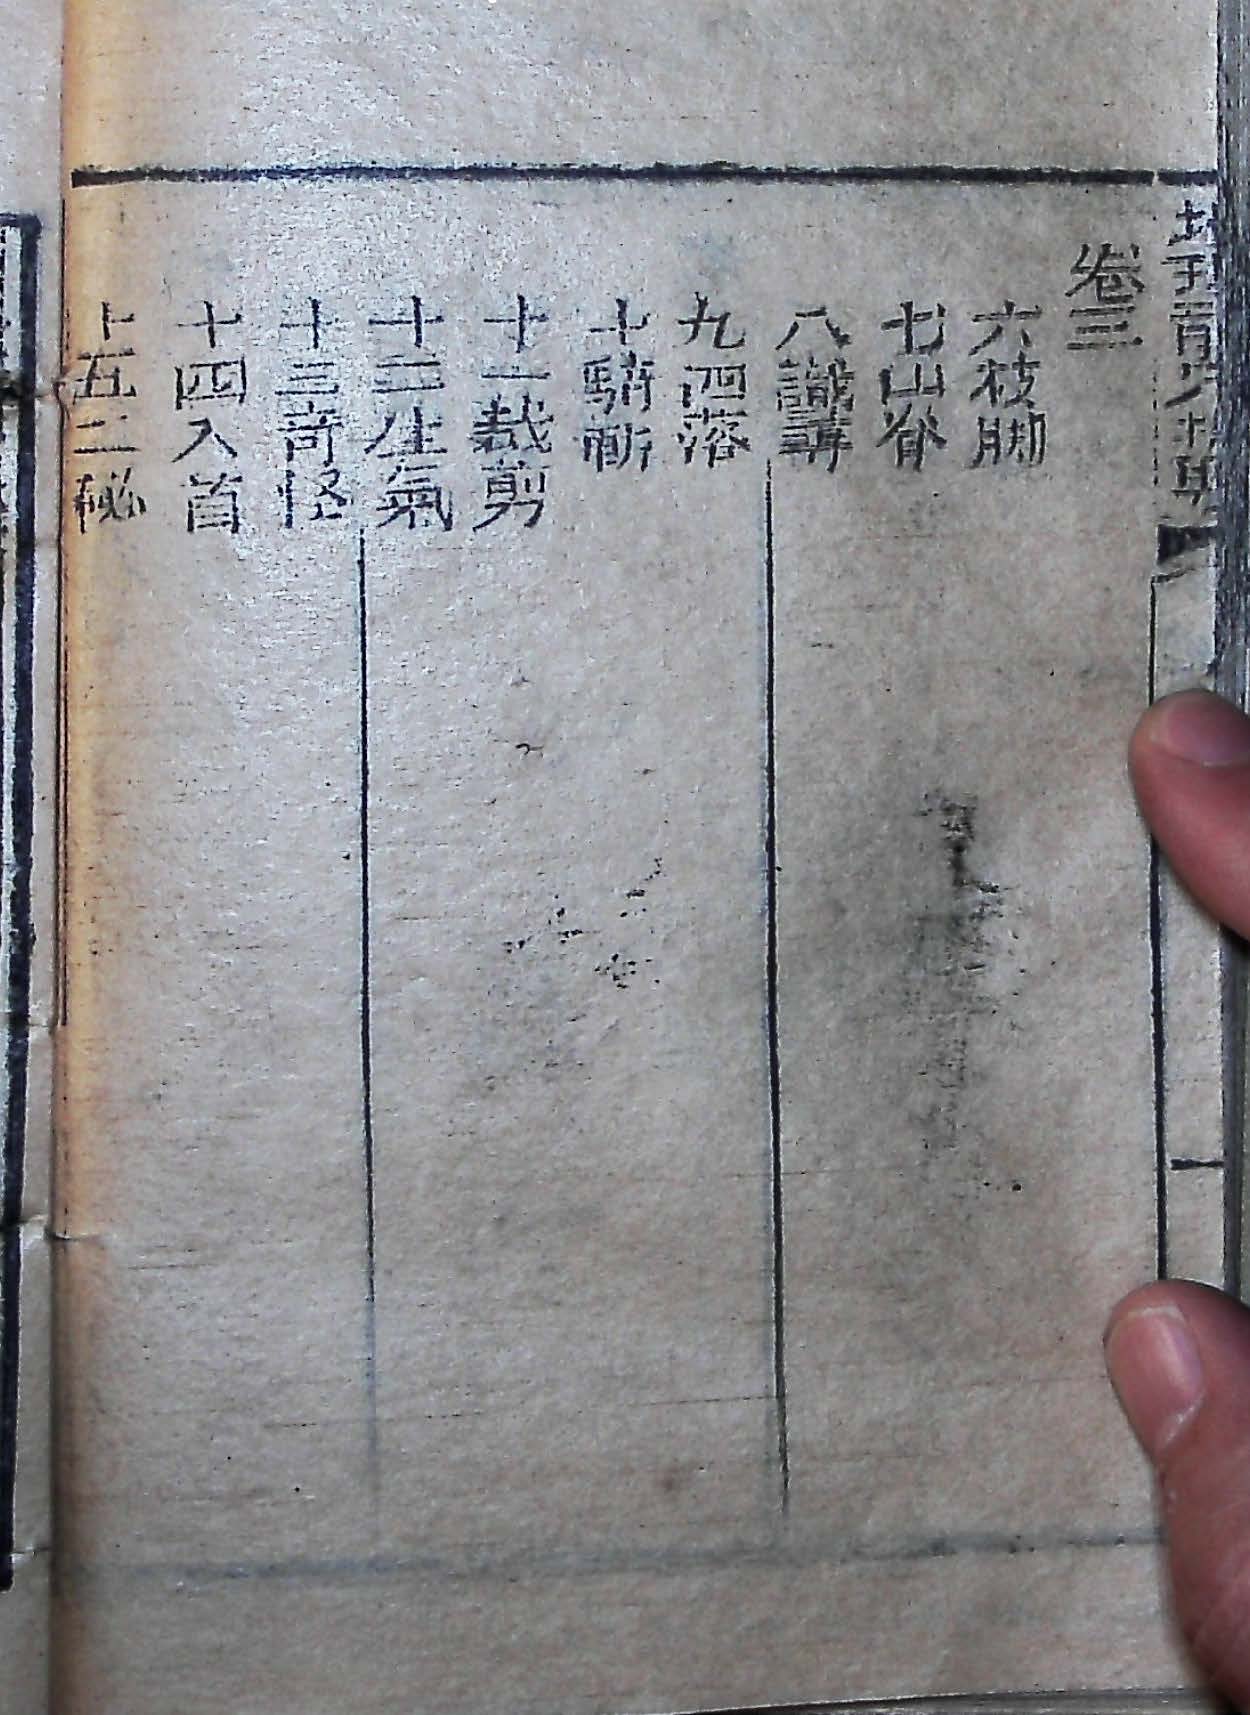 卷三
六枝脚
七山脊
八識講
九四落
十騎斬
十一裁剪
十二生氣
十三奇怪
十四入首
十五二秘